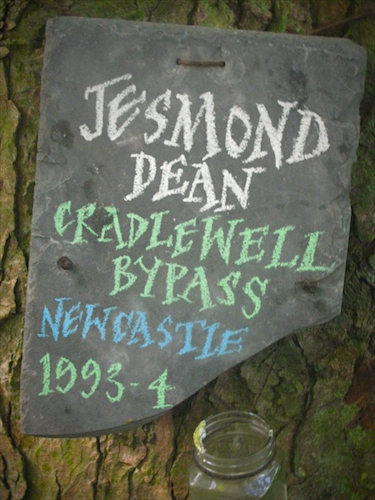 JESMOND
DEAN
CRADLEWELL
BYPASS
NEWCASTLE
1993-4